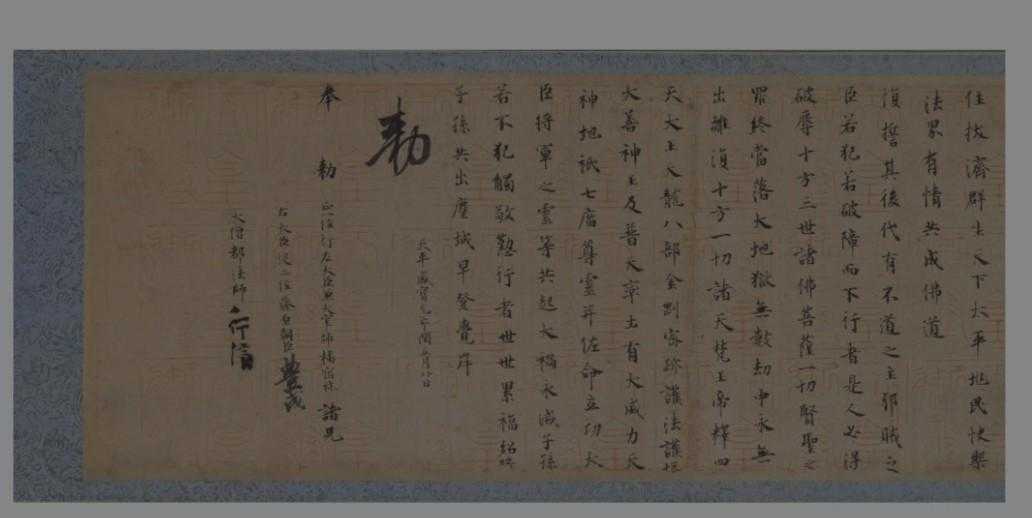 住拔濟群生天下太平兆民快樂
法界有情共成佛道
復誓其後代有不道之主邪賊之
臣若犯若破障而不行者是人必得
破辱十方三世諸佛菩薩一切賢聖之
罪終當落大地獄無數劫中永無
出離復十方一切諸天梵王帝釋四
天大王天龍八部金剛密跡護法護塔
大善神王及普天率土有大威力天
神地祇七廟尊靈并佐命立功大
臣將軍之靈等共起大禍永滅子孫
若不犯觸敬懃行者世世累福紹
子孫共出塵域早登覺岸
天平感寶元年閏五月廿日
勅
奉 勅 正一位行左大臣兼大宰帥橘宿祢 諸兄
右大臣從二位藤原朝臣 豊成
大僧都法師 行信